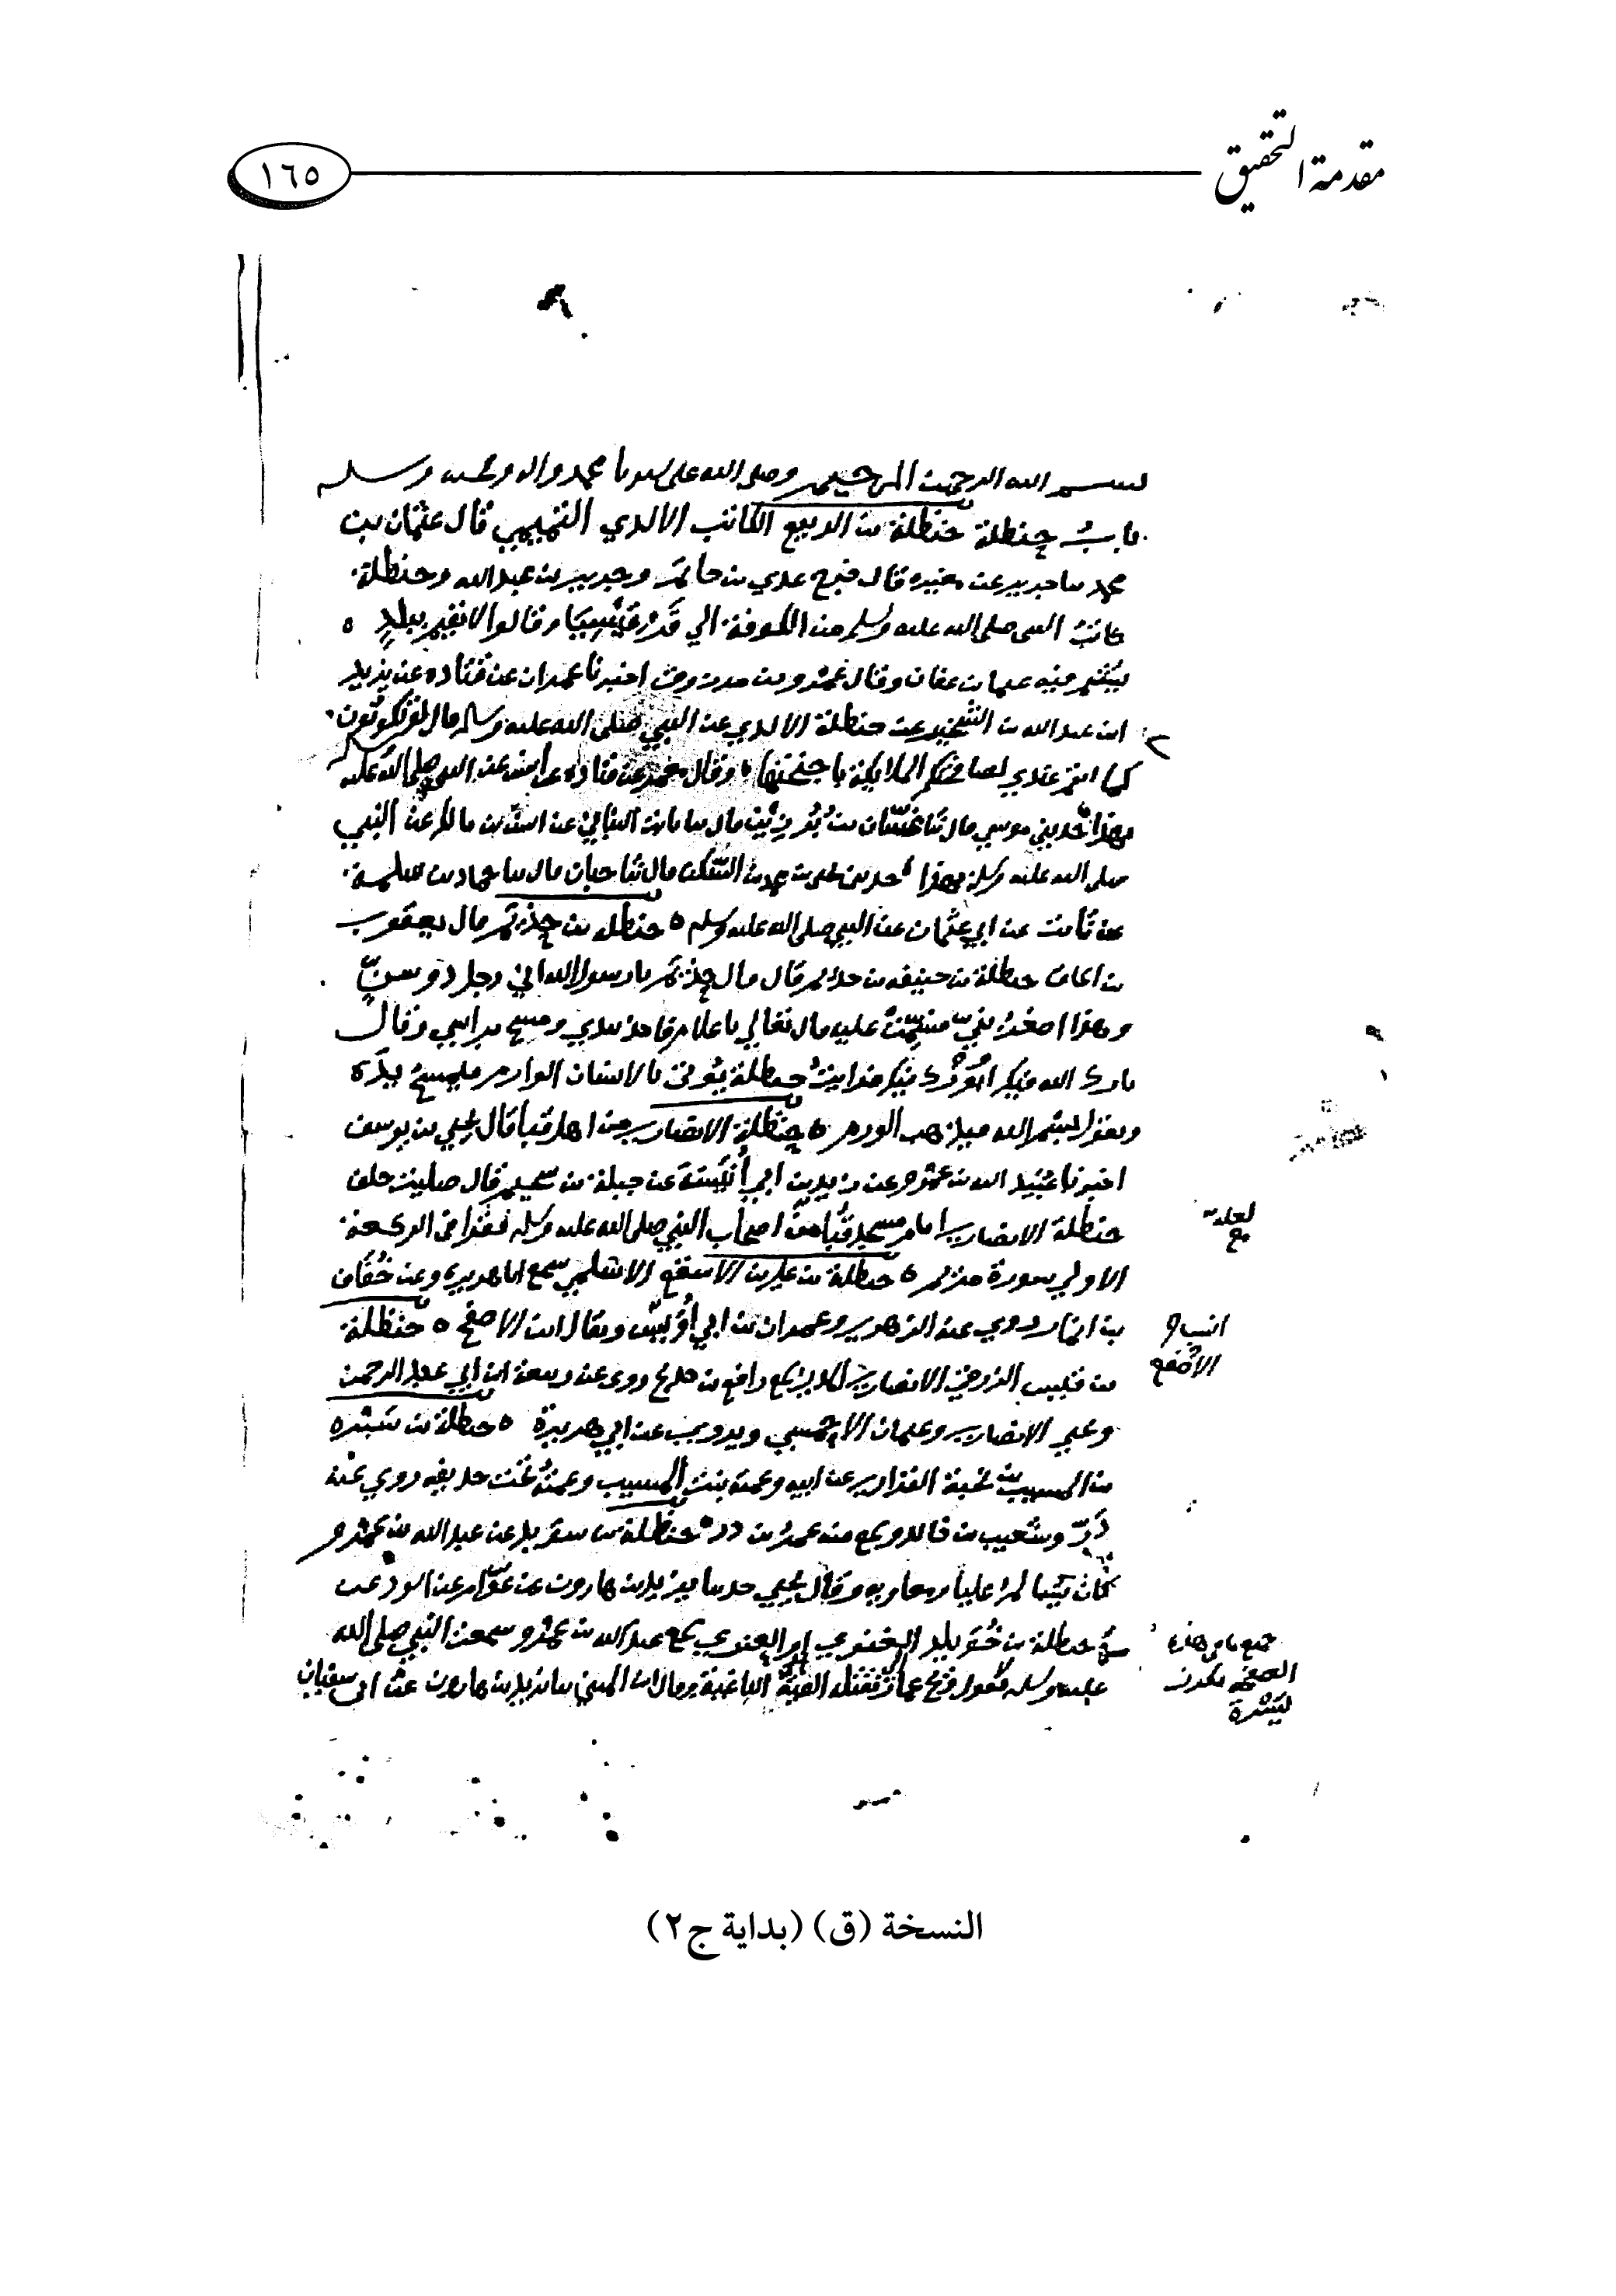 مقدمة التحقيق
١٦٥
بسم الله الرحمن الرحيم وصلى الله على سيدنا محمد واله وصحبه وسلم
باب حنظلة حنظلة بن الربيع الكاتب الاسدي التميمي قال عثمان بن
محمد نا جرير عن مغيره قال خرج عدي بن حاتم وجرير بن عبد الله وحنظلة
كاتب النبي صلى الله عليه وسلم من الكوفة الي قرقيسيا وقالوا لا نقيم ببلد
يشتم فيه عثمان بن عفان وقال عمرو بن مرزوق اخبرنا عمران عن قتاده عن يزيد
ابن عبد الله بن الشخير عن حنظلة الاسدي عن النبي صلى الله عليه وسلم قال لو تكونون
كما انتم عندي لصافحتكم الملايكة باجنحتها وقال معمر عن قتاده عن انس عن النبي صلى الله عليه وسلم
بهذا حدثني موسي قال ثنا غسان بن برزين قال ثنا ثابت البناني عن انس بن مالك عن النبي
صلى الله عليه وسلم بهذا حدثني يحيى بن محمد بن السكن قال ثنا حبان قال ثنا حماد بن سلمة
عن ثابت عن ابي عثمان عن النبي صلى الله عليه وسلم حنظله بن حذيم قال يعقوب
بن اسحاق حنظلة بن حنيفه بن حذيم قال قال حذيم يا رسول الله اني رجل ذو سن
وهذا اصغر بني فسمت عليه قال تعالي يا غلام فاخذ بيدي ومسح براسي وقال
بارك الله فيك او بورك فيك فرايت حنظلة يوتى بالانسان الوارم فيمسح بيده
ويقول بسم الله فيذهب الورم حنظلة الانصاري من اهل قبا قال يحيي بن يوسف
اخبرنا عبيد الله بن عمرو عن زيد بن ابي أنيسة عن جبلة بن سحيم قال صليت خلف
حنظلة الانصاري امام مسجد قبا من اصحاب النبي صلى الله عليه وسلم فقرا في الركعة
الاولى بسورة مريم حنظلة بن علي بن الاسقع الاسلمي سمع ابا هريره وعن خفاف
بن ايما روي عنه الزهري وعمران بن ابي أنس ويقال ابن الاصقع حنظلة
بن قيس الزرقي الانصاري المديني سمع رافع بن خديج روى عنه ربيعة ابن ابي عبد الرحمن
ويحيى الانصاري وعثمان الاحمسي ويروي عن ابي هريرة حنظلة بن سبره
بن المسيب بن نجبة الفزاري عن ابيه وعمته بنت المسيب وعمته تحت حذيفه روي عنه
ذر وشعيب بن خالد وسمع منه عمر بن ذر حنظلة بن سويد عن عبد الله بن عمرو
كان يتيما لمر عليا ومعاويه وقال يحيي حدثنا يزيد بن هارون عن عوام عن اسود عن
حنظلة بن خويلد الغنوي او العنزي سمع عبد الله بن عمرو سمعت النبي صلى الله
عليه وسلم يقول ويح عمار تقتله الفئة الباغية وقال ابن المثني نا يزيد بن هارون عن ابي سفيان
لعله
الاصقع
جميع ما في هذه
الصفحة
النسخة (ق) (بداية ج٢)